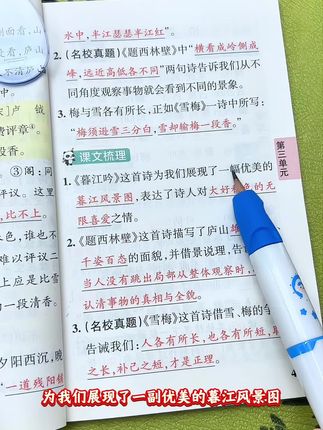 水中,半江瑟瑟半江红”。
2.(名校真题)《题西林壁》中“横看成岭侧成
峰,远近高低各不同”两句诗告诉我们从不
同角度观察事物就会看到不同的景象。
3. 梅与雪各有所长,正如《雪梅》一诗中所写:
“梅须逊雪三分白,雪却输梅一段香。”
课文梳理
1.《暮江吟》这首诗为我们展现了一幅优美的
暮江风景图,表达了诗人对大好
色的无
限喜爱之情。
2.《题西林壁》这首诗描写了庐山
千姿百态的面貌,并借景说理,告
当人没有跳出局部从整体观察时,
认清事物的真相与全貌。
3.(名校真题)《雪梅》这首诗借雪、梅的争
告诫我们:人各有所长,也各有所短,
之长,补己之短,才是正理。
第三单元
面看,
侧面看,庐山
不清
宋]卢 钺
费评章④。
段香。
③阁:同
比不上。
,谁也不
难以评议二
上应是比雪
的一段清香。
夕阳西沉,晚
“一道残阳铺
为我们展现了一副优美的暮江风景图